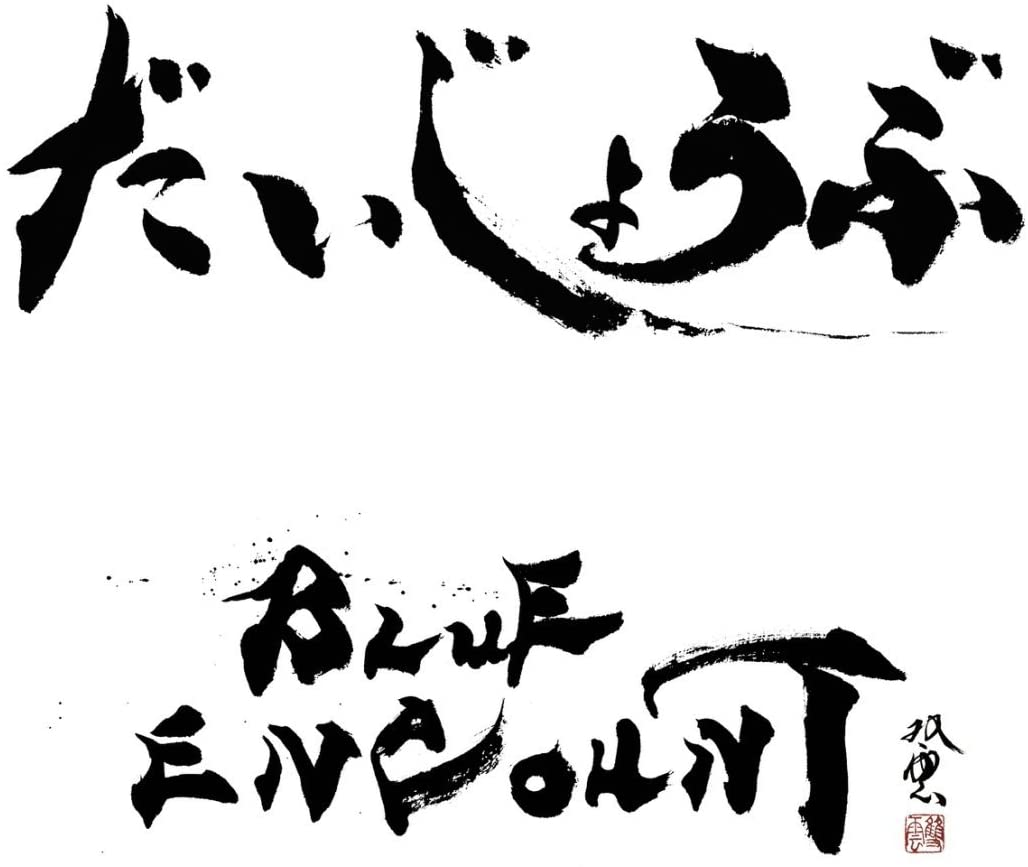 だいじょうぶ
BLUE
ENCOUNT